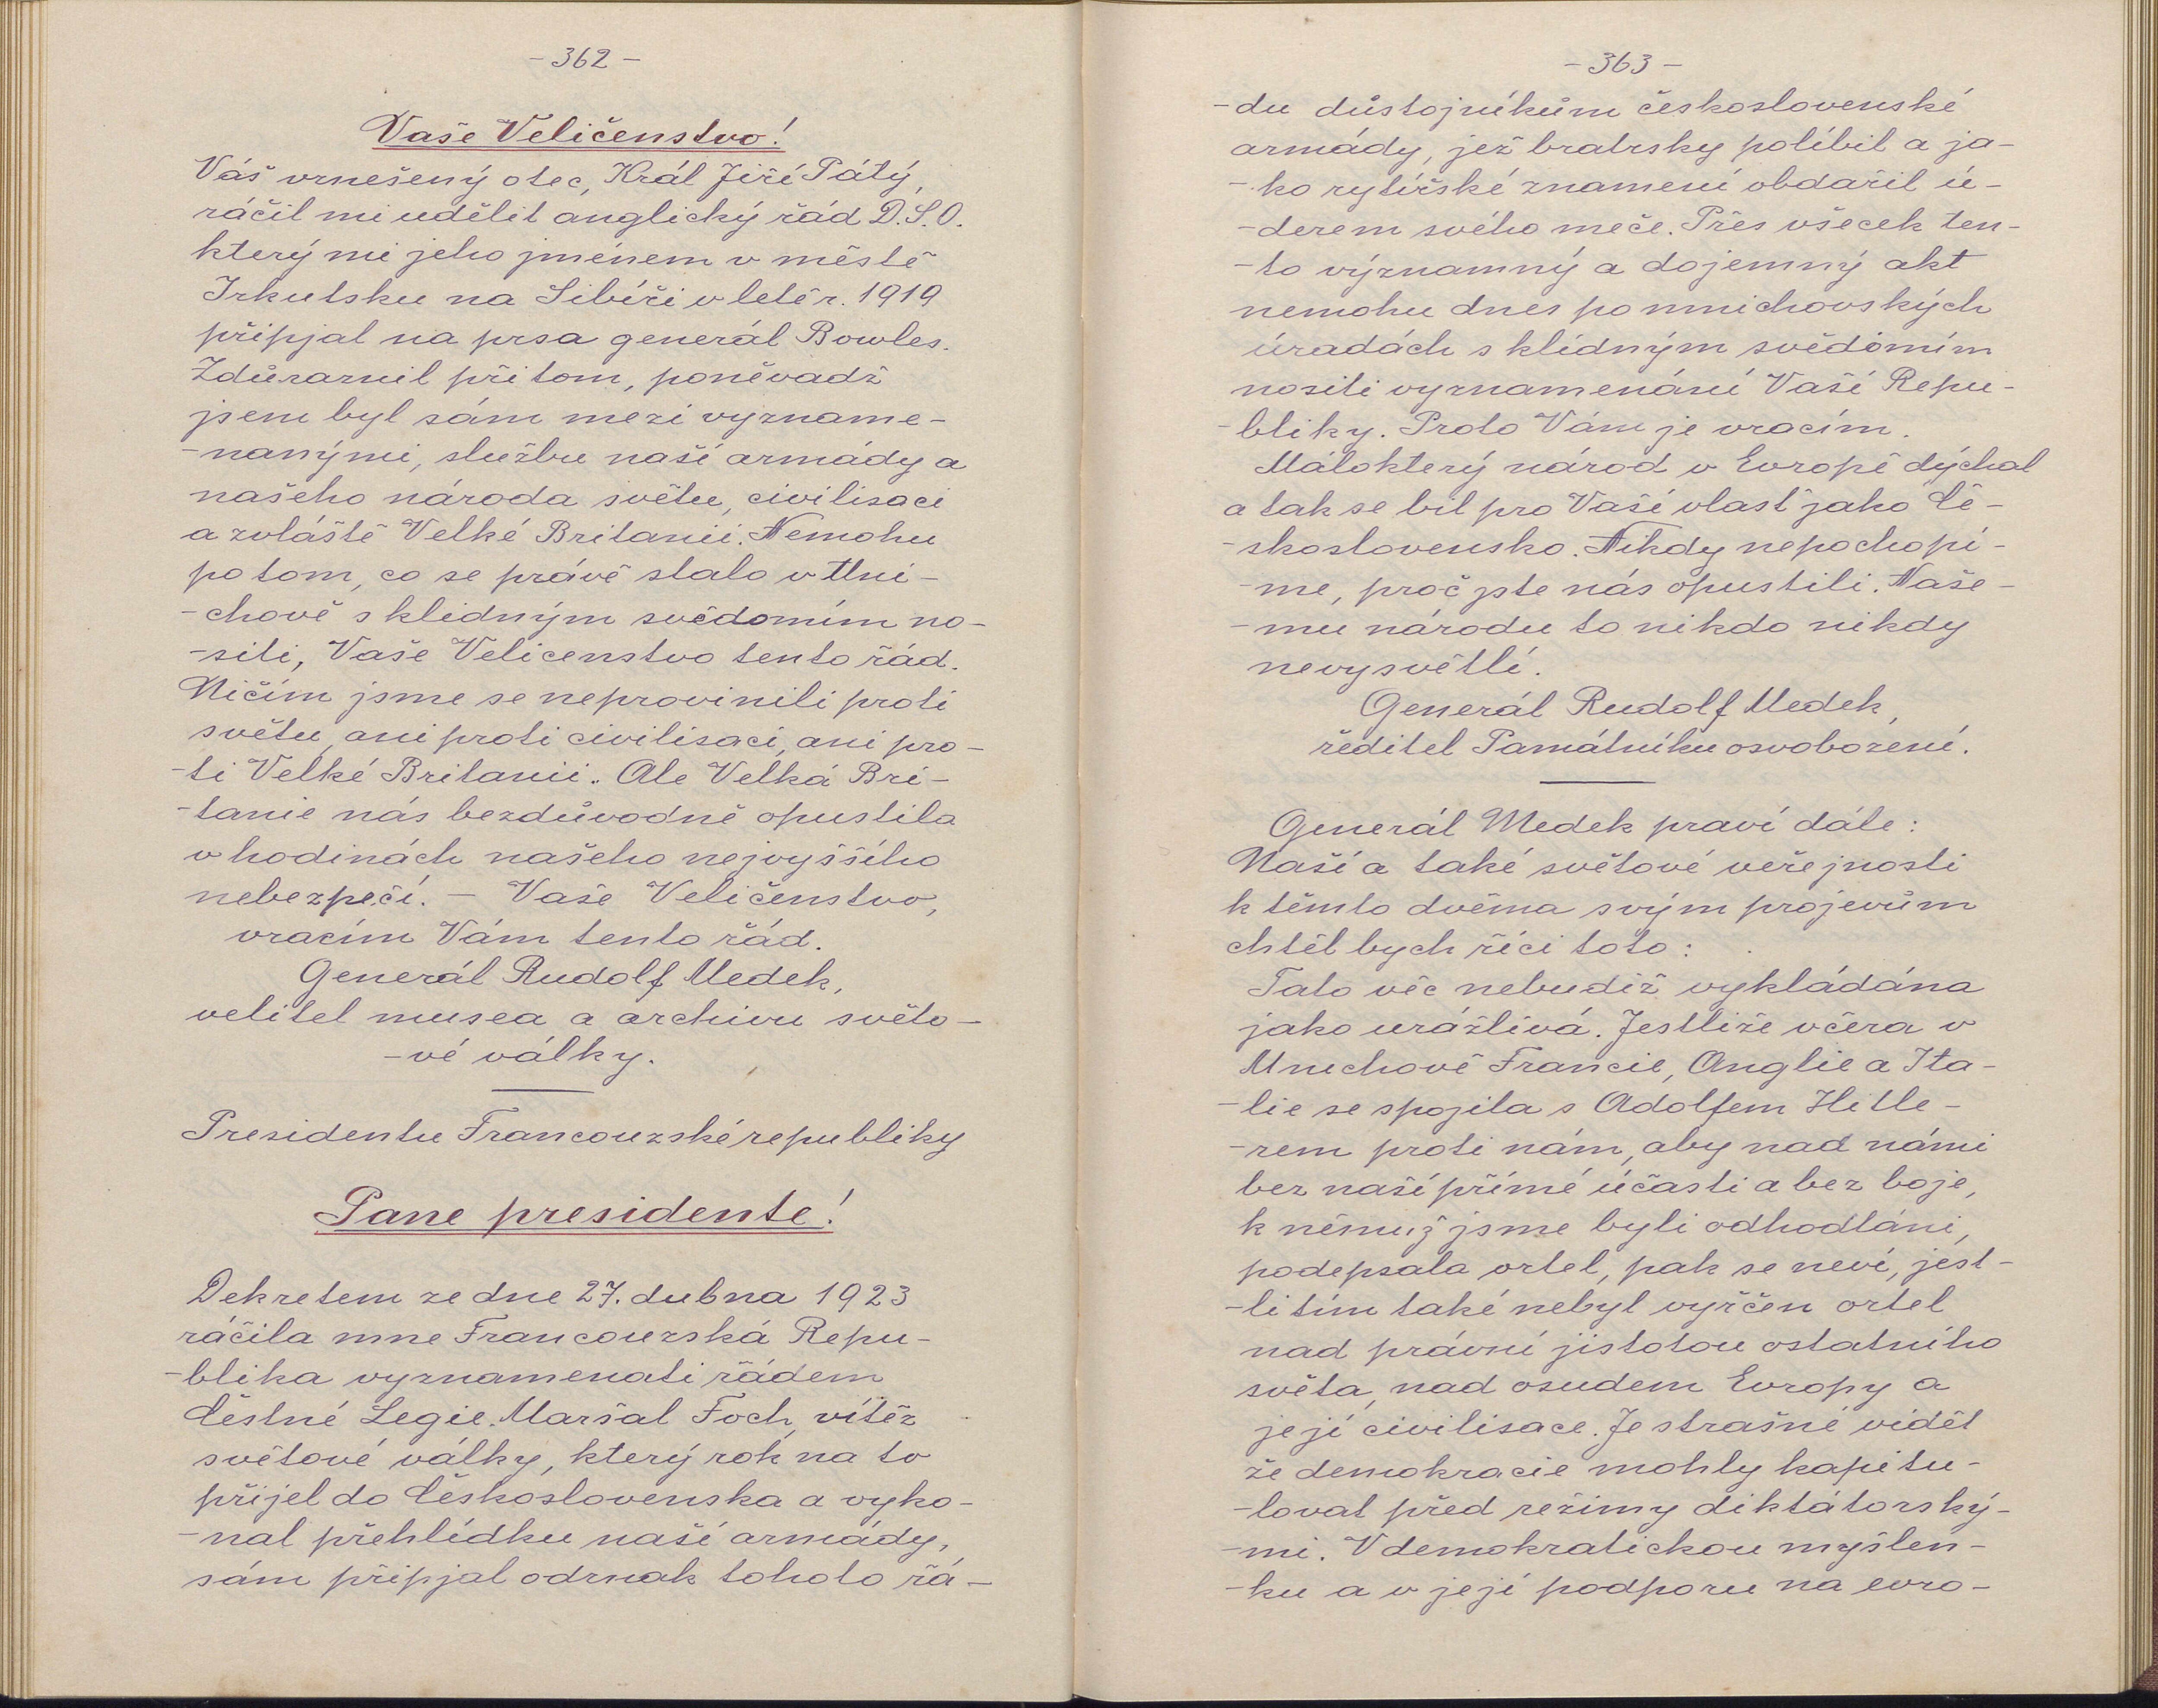 - 362 -
Vaše Veličenstvo!
Váš vznešený otec, Král Jiří Pátý,
ráčil mi udělit anglický řád D.S.O.
který mi jeho jménem v městě
Irkutsku na Sibíři v létě r. 1919
připjal na prsa generál Bowles.
Zdůraznil při tom, poněvadž
jsem byl sám mezi vyzname-
-nanými, službu naší armády a
našeho národa světu, civilisaci
a zvláště Velké Britanii. Nemohu
po tom, co se právě stalo v Mni-
-chově s klidným svědomím no-
-siti, Vaše Velicenstvo tento řád.
Ničím jsme se neprovinili proti
světu, ani proti civilisaci, ani pro-
-ti Velké Britanii. Ale Velká Bri-
-tanie nás bezdůvodně opustila
v hodinách našeho nejvyššího
nebezpečí. - Vaše Veličenstvo,
vracím Vám tento řád.
Generál Rudolf Medek,
velitel musea a archivu světo-
-vé války.
Presidentu Francouzské republiky
Pane presidente!
Dekretem ze dne 27. dubna 1923
ráčila mne Francouzská Repu-
-blika vyznamenati řádem
Čestné Legie. Maršal Foch, vítěz
světové války, který rok na to
přijel do Československa a vyko-
-nal přehlídku naší armády,
sám připjal odznak tohoto řá-
- 363 -
-du důstojníkům československé
armády, jež bratrsky políbil a ja-
-ko rytířské znamení obdařil ú-
-derem svého meče. Přes všecek ten-
-to významný a dojemný akt
nemohu dnes po mnichovských
úradách s klidným svědomím
nositi vyznamenání Vaší Repu-
-bliky. Proto Vám je vracím.
Máloktérý národ v Evropě dýchal
a tak se bil pro Vaši vlast jako Če-
-skoslovensko. Nikdy nepochopí-
-me, proč jste nás opustili. Naše-
-mu národu to nikdo nikdy
nevysvětlí.
Generál Rudolf Medek,
ředitel Památníku osvobození.
Generál Medek praví dále:
Naší a také světové veřejnosti
k těmto dvěma svým projevům
chtěl bych říci toto:
Tato věc nebudiž vykládána
jako urážlivá. Jestliže včera v
Mnichově Francie, Anglie a Ita-
-lie se spojila s Adolfem Hitle-
-rem proti nám, aby nad námi
bez naší přímé účasti a bez boje,
k němuž jsme byli odhodláni,
podepsala ortel, pak se neví, jest-
-li tím také nebyl vyřčen ortel
nad právní jistotou ostatního
světa, nad osudem Evropy a
její civilisace. Je strašné vidět
že demokracie mohly kapitu-
-lovat před režimy diktátorský-
-mi. V demokratickou myšlen-
-ku a v její podporu na evro-